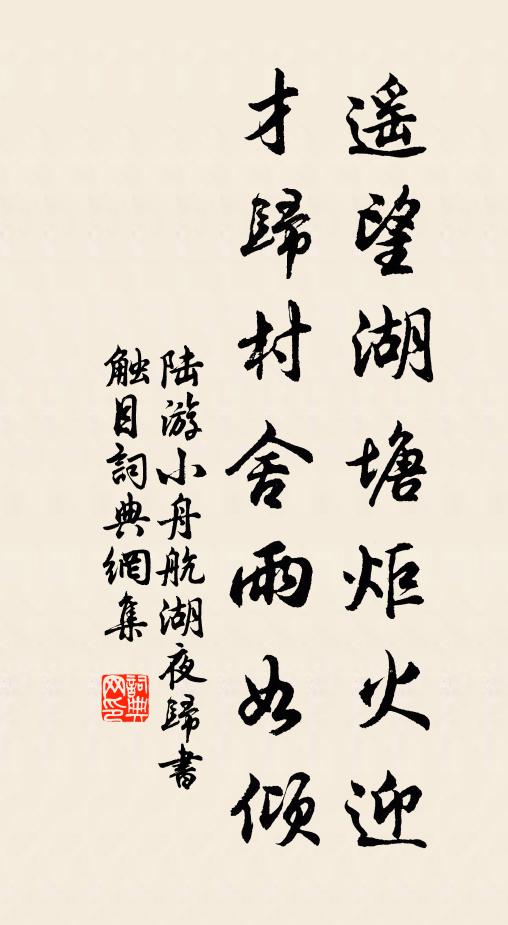 遥望湖塘炬火迎
才歸村舍雨如傾
陆游小舟航湖夜歸書
触目詞典網集
詞典
网印